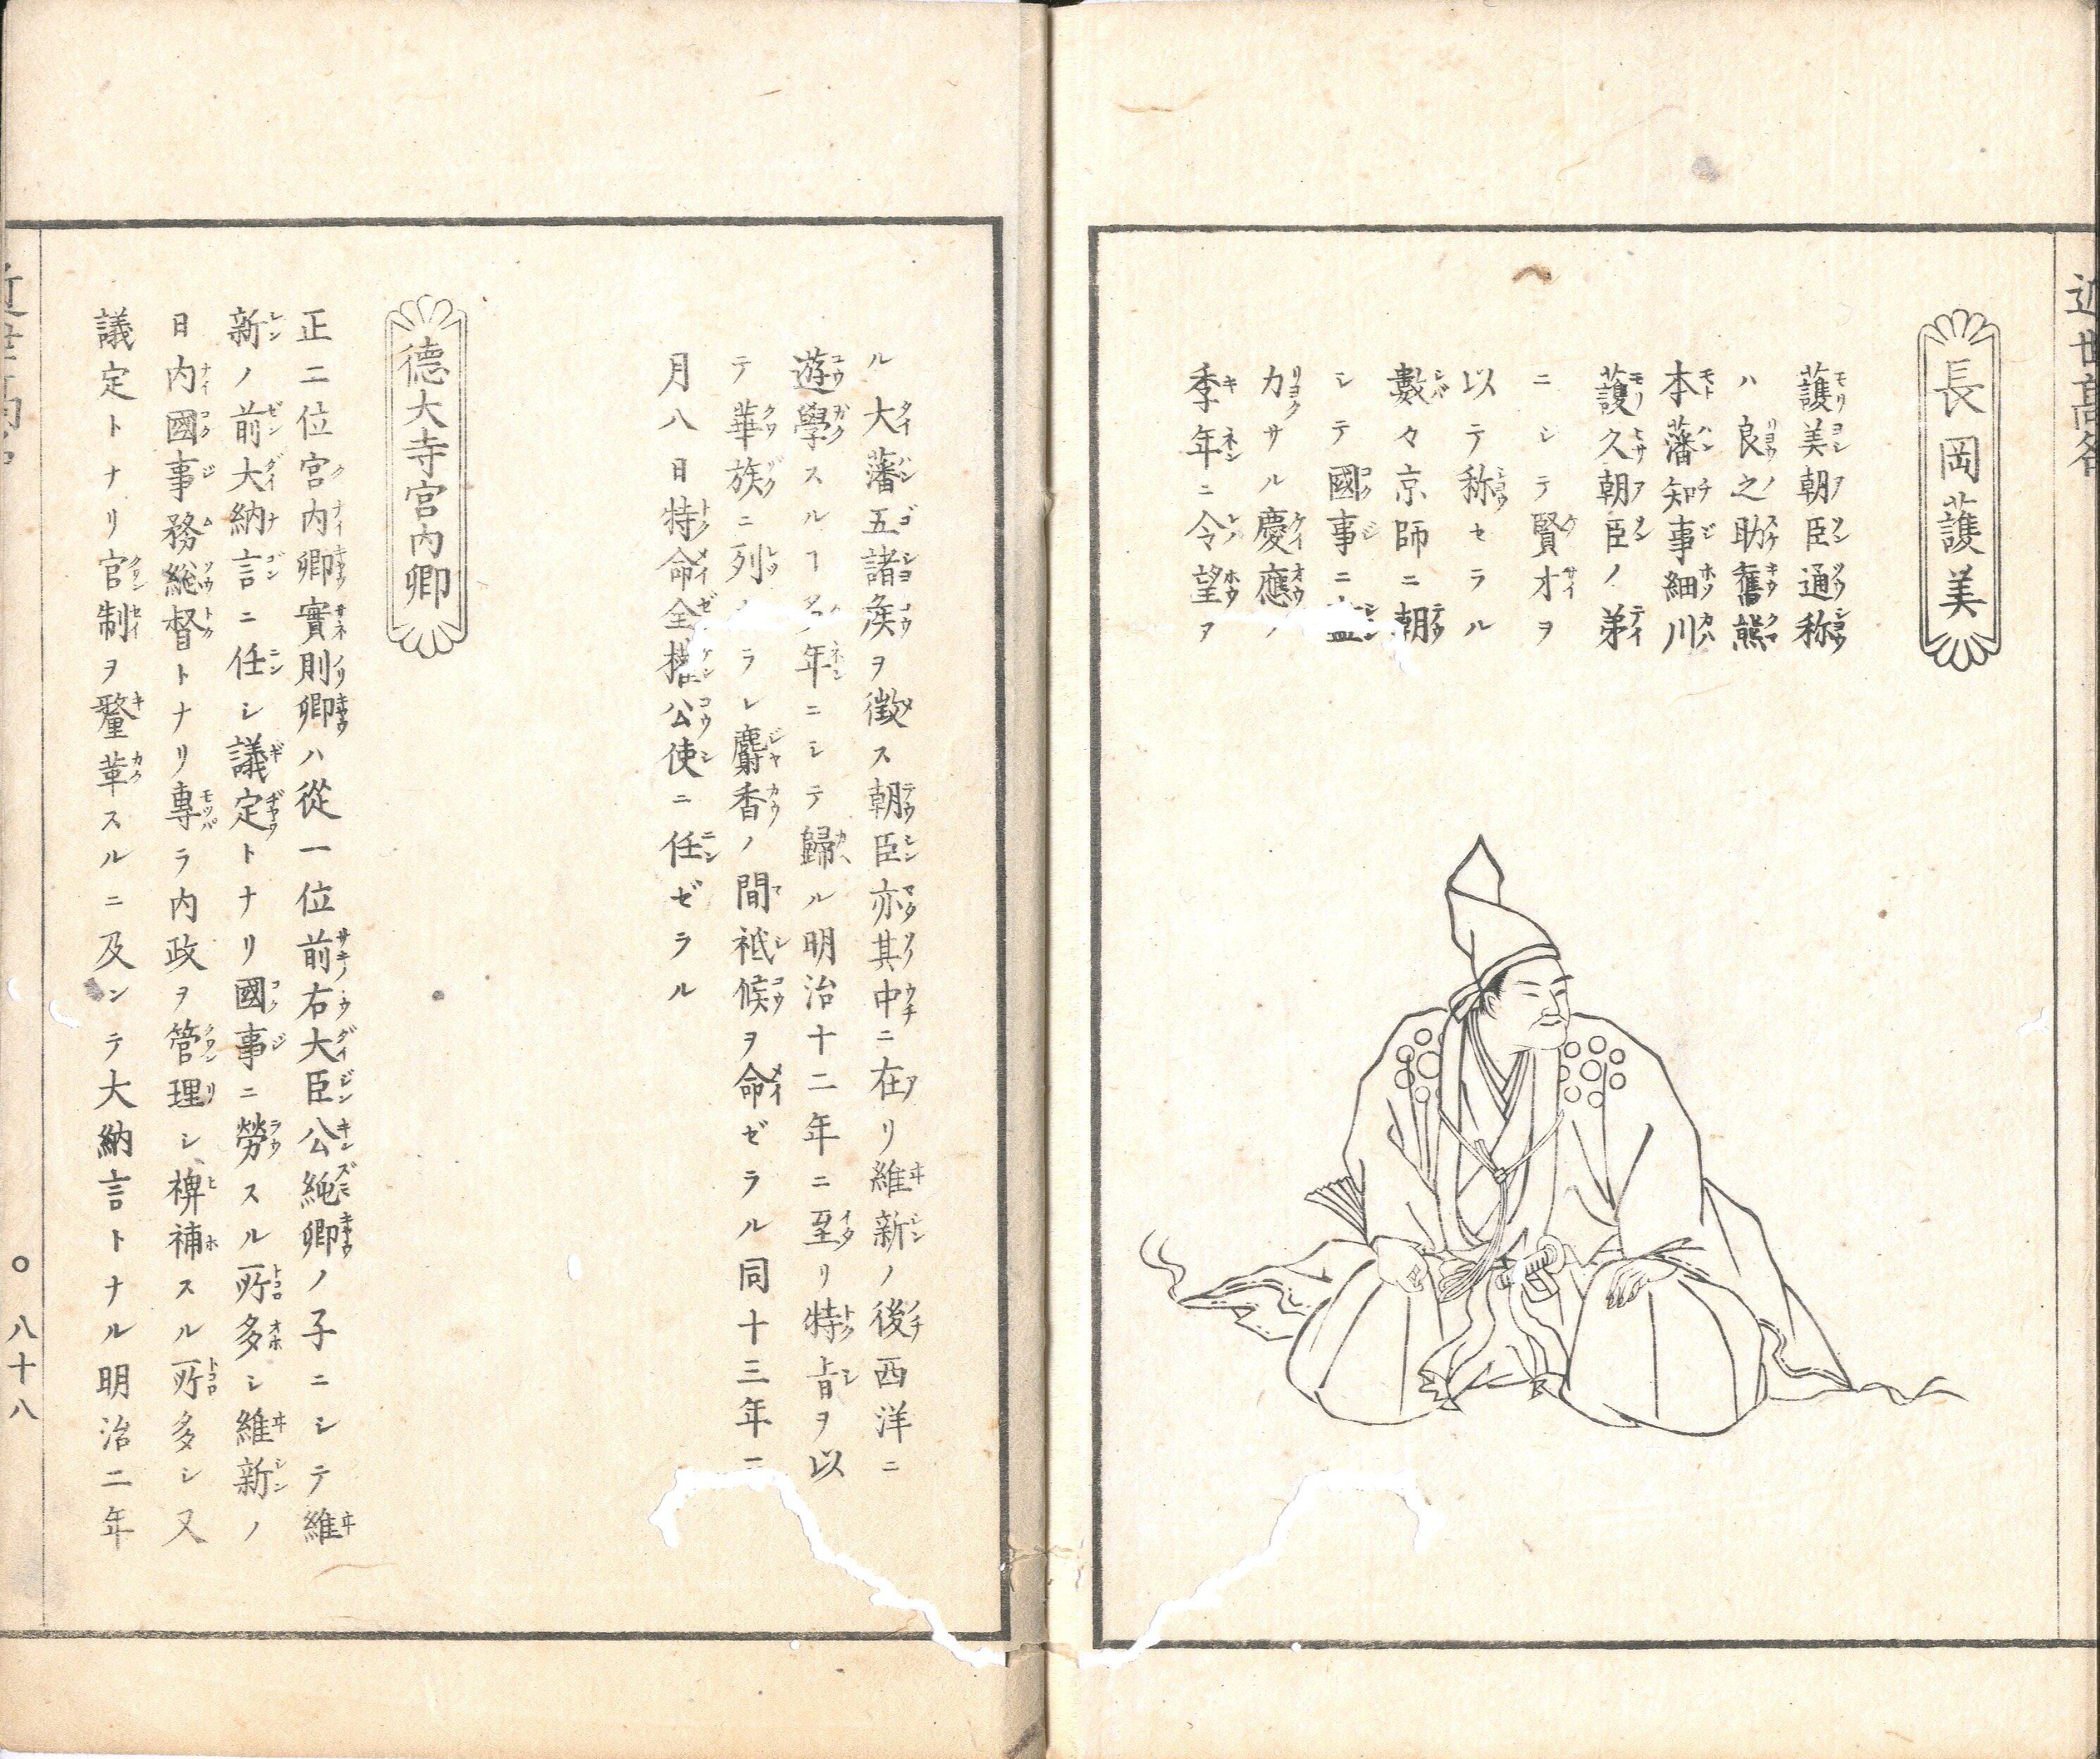 近世高名
長岡護美
護美朝臣通称
ハ良之助舊熊
本藩知事細川
護久朝臣ノ弟
ニシテ賢才ヲ
以テ称セラル
數々京師ニ朝
シテ國事ニ盡
力サル慶應ノ
季年ニ令望ア
ル大藩五諸矦ヲ徴ス朝臣亦其中ニ在リ維新ノ後西洋ニ
遊學スルヿ多年ニシテ歸ル明治十二年ニ至リ特旨ヲ以
テ華族ニ列セラレ麝香ノ間祗候ヲ命ゼラル同十三年二
月八日特命全権公使ニ任ゼラル
德大寺宮内卿
正二位宮内卿實則卿ハ從一位前右大臣公純卿ノ子ニシテ維
新ノ前大納言ニ任シ議定トナリ國事ニ勞スル所多シ維新ノ
日内國事務総督トナリ專ラ内政ヲ管理シ裨補スル所多シ又
議定トナリ官制ヲ釐革スルニ及ンテ大納言トナル明治二年
八十八